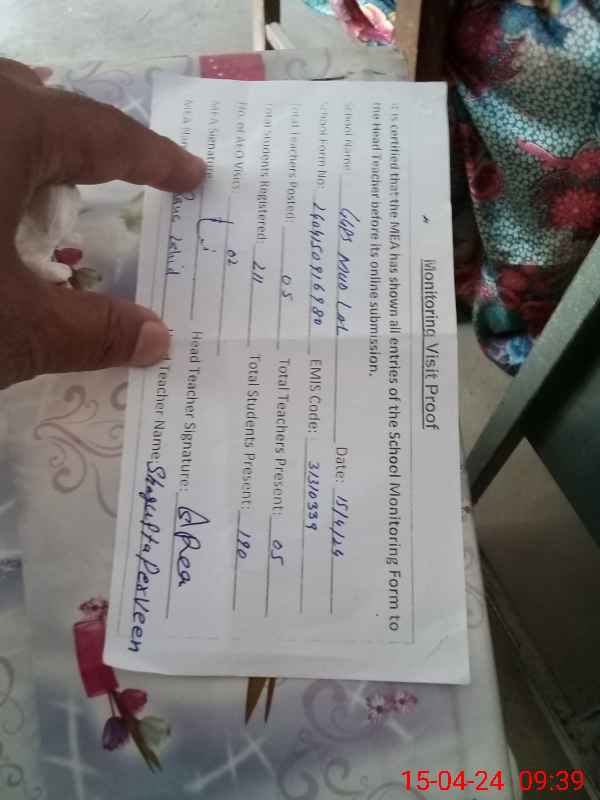 Monitoring Visit Proof
It is certified that the MEA has shown all entries of the School Monitoring Form to
the Head Teacher before its online submission.
School Name: GGPS Lal Date: 15/4/24
School Form No: EMIS Code: 31310339
Total Teachers Posted: 05 Total Teachers Present: 05
Total Students Registered: 211 Total Students Present: 190
No. of AEO Visits: 02
MEA Signature: Head Teacher Signature:
MEA Name Teacher Name: Shagufta Perveen
15-04-24 09:39